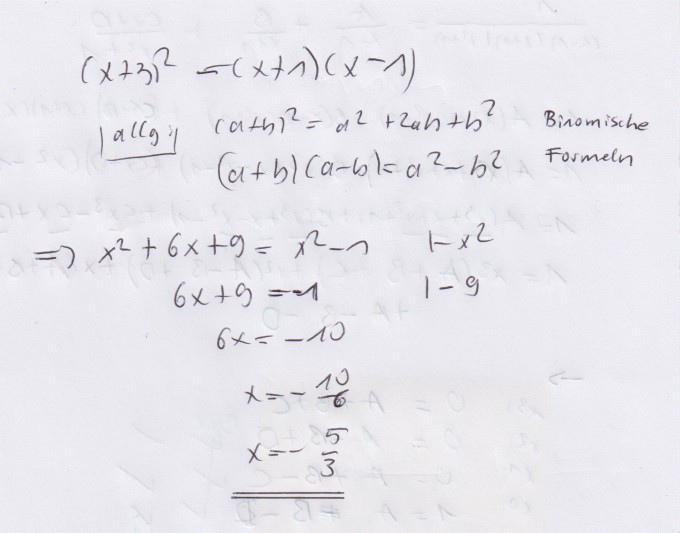 (x+3)² = (x+1)(x-1)
|allg.| (a+b)² = a² + 2ab + b² Binomische
(a+b)(a-b) = a² - b² Formeln
=> x² + 6x + 9 = x² - 1 |- x²
6x + 9 = -1 |- 9
6x = -10
x = - 10/6
x = - 5/3